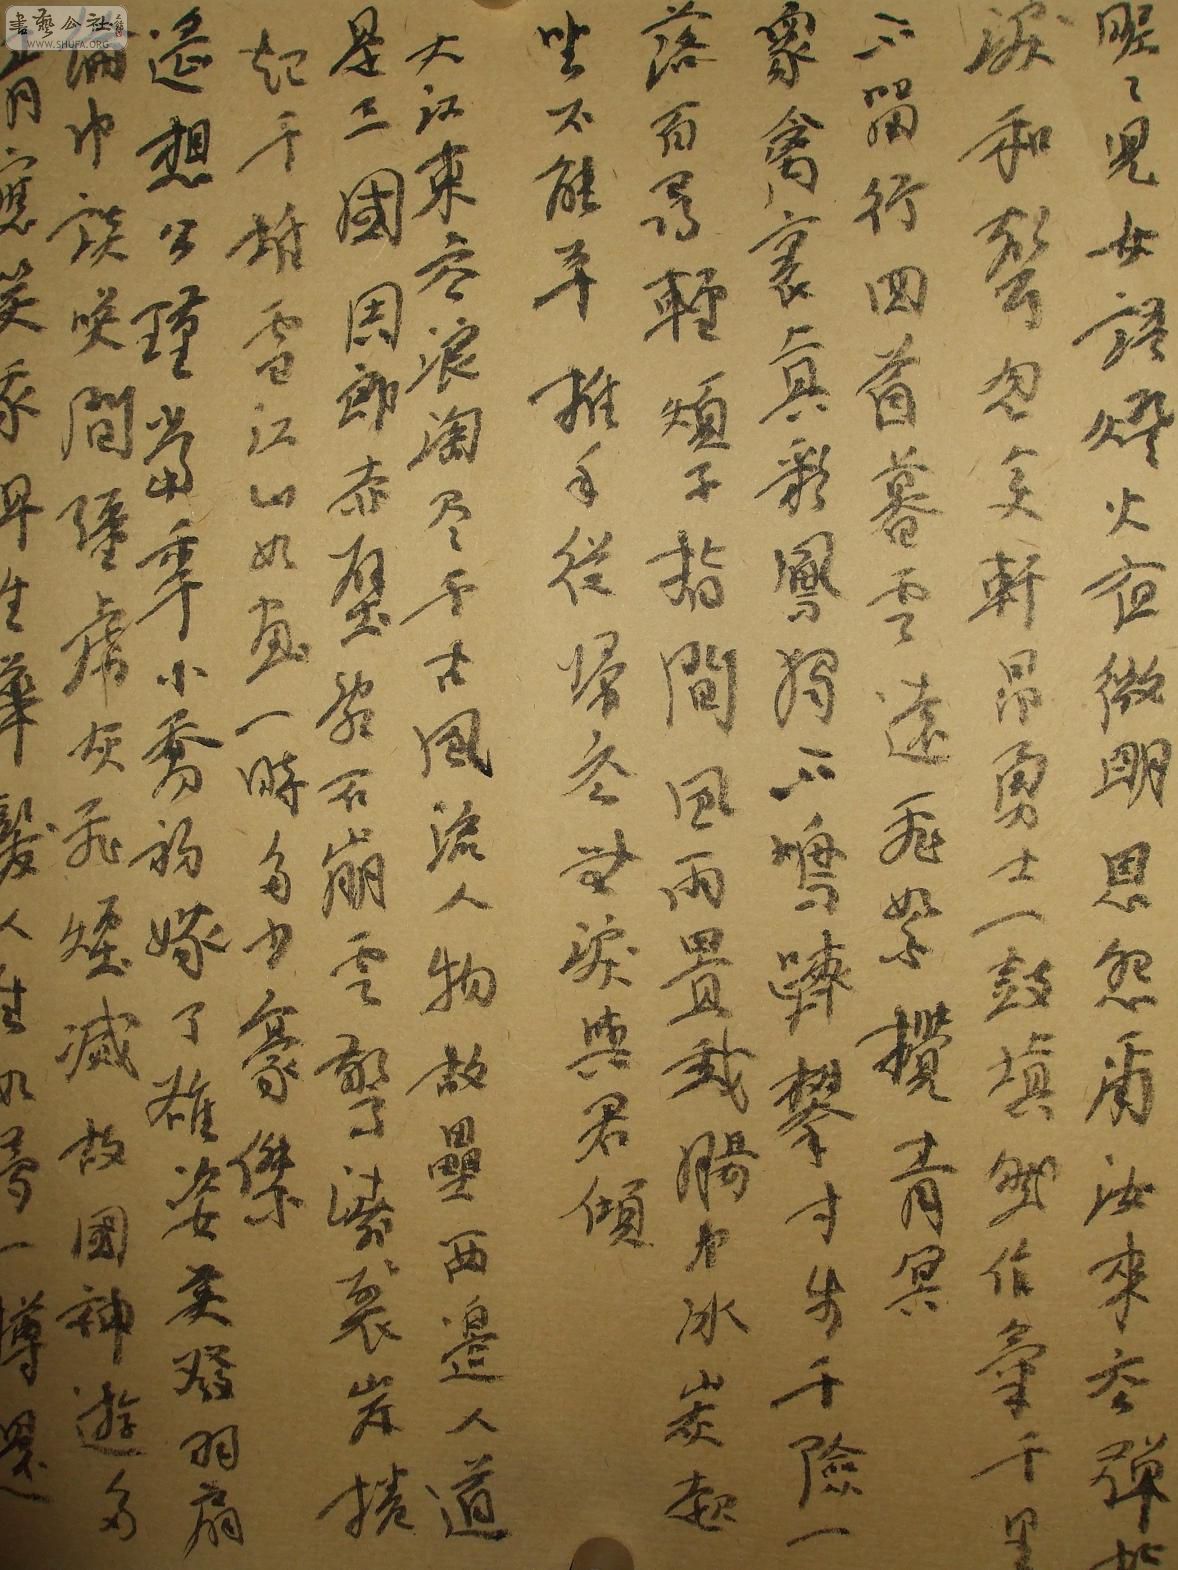 昵昵兒女語燈火夜微明恩怨爾汝來去彈指
淚和聲忽變軒昂勇士一鼓填然作氣千里
不留行回首暮雲遠飛絮攪青冥
眾禽裏真彩鳳獨不鳴躋攀寸步千險一
落百尋輕煩子指間風雨置我腸中冰炭起
坐不能平推手從歸去無淚與君傾
大江東去浪淘尽千古風流人物故壘西邊人道
是三國周郎赤壁亂石崩雲驚濤裂岸捲
起千堆雪江山如畫一時多少豪傑
遙想公瑾當年小喬初嫁了雄姿英發羽扇
綸巾談笑間強虜灰飛煙滅故國神遊多
情應笑我早生華髮人生如夢一樽還
書藝公社
WWW.SHUFA.ORG